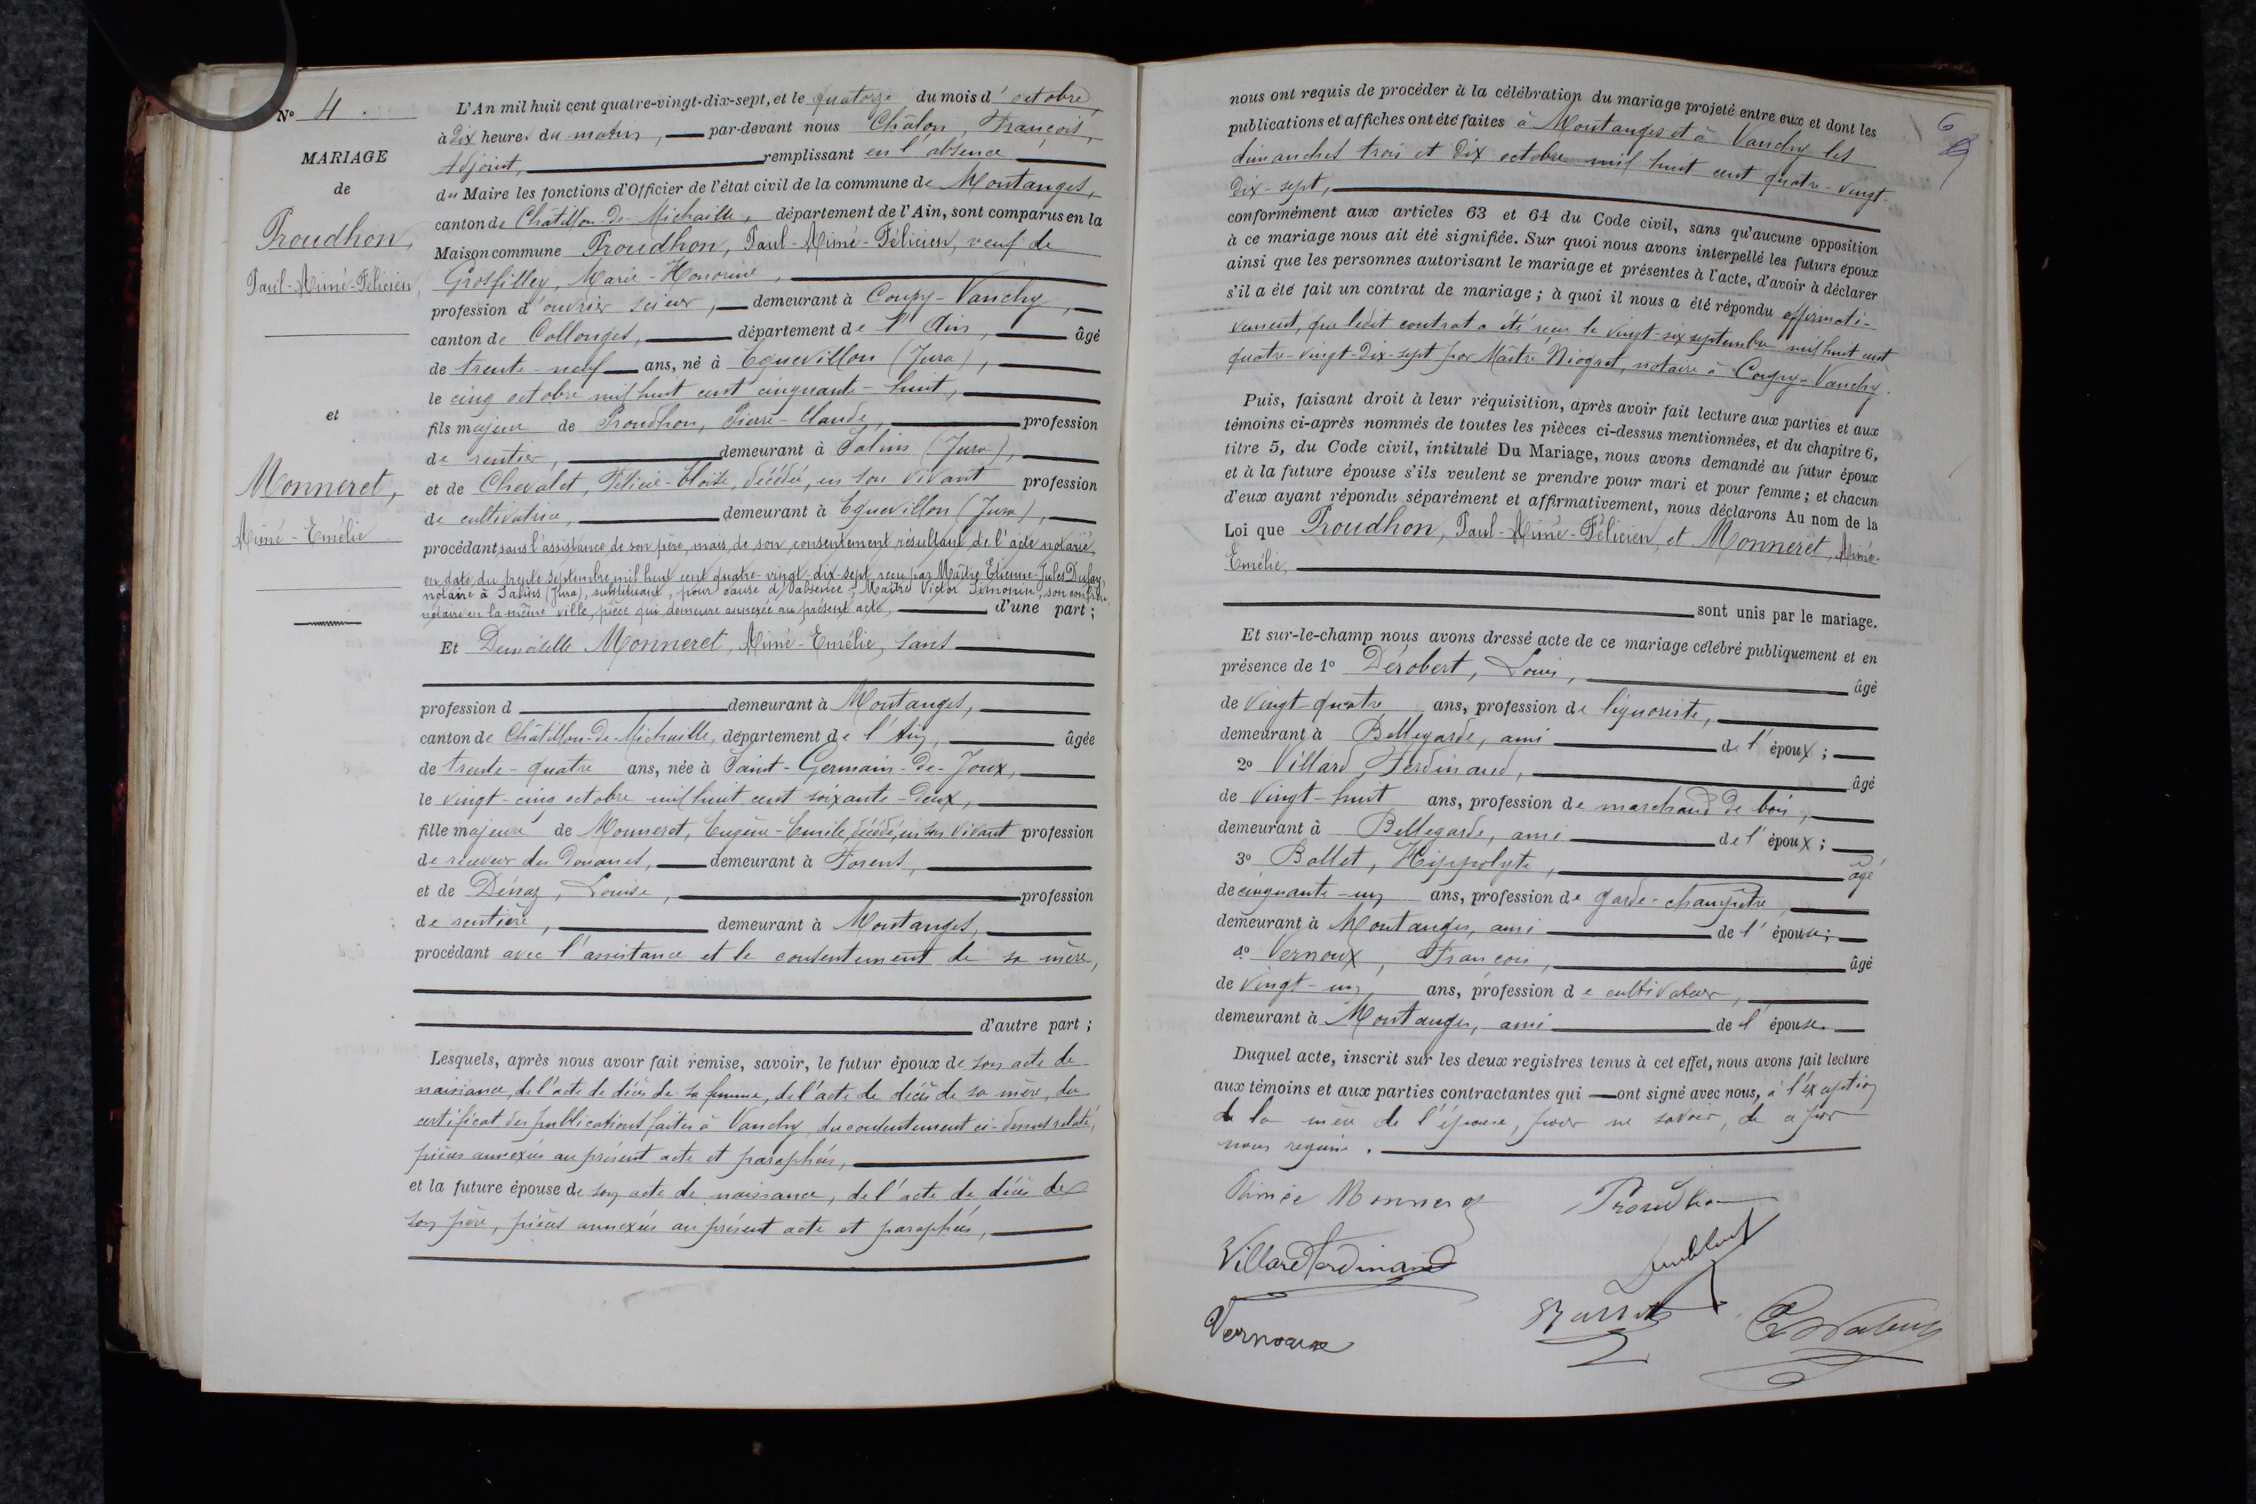 N° 4
MARIAGE
de
Proudhon,
Paul-Aimé-Félicien,
et
Monneret,
Aimé-Emélie
L'An mil huit cent quatre-vingt-dix-sept, et le quatorze du mois d'octobre,
à dix heures du matin, par-devant nous Châlon, François,
Adjoint, remplissant en l'absence
du Maire les fonctions d'Officier de l'état civil de la commune de Montanges,
canton de Châtillon-de-Michaille, département de l'Ain, sont comparus en la
Maison commune Proudhon, Paul-Aimé-Félicien, veuf de
Grosfilley, Marie-Honorine,
profession d'ouvrier scieur, demeurant à Coupy-Vanchy,
canton de Collonges, département de l'Ain, âgé
de trente-neuf ans, né à Equevillon (Jura),
le cinq octobre mil huit cent cinquante-huit,
fils majeur de Proudhon, Pierre-Claude, profession
de rentier, demeurant à Salins (Jura),
et de Chevalet, Félicie-Eloïse, décédée, en son vivant profession
de cultivatrice, demeurant à Equevillon (Jura),
procédant sans l'assistance de son père, mais de son consentement résultant de l'acte notarié,
en date du trente septembre mil huit cent quatre-vingt-dix-sept reçu par Maître Etienne-Jules Dufay,
notaire à Salins (Jura), substituant, pour cause d'absence, Maître Victor Simonin, son confrère,
notaire en la même ville, pièce qui demeure annexée au présent acte, d'une part;
Et Demoiselle Monneret, Aimé-Emélie, sans
profession d demeurant à Montanges,
canton de Châtillon-de-Michaille, département de l'Ain, âgée
de trente-quatre ans, née à Saint-Germain-de-Joux,
le vingt-cinq octobre mil huit cent soixante-deux,
fille majeure de Monneret, Eugène-Emile, décédé, en son vivant profession
de receveur des douanes, demeurant à Forens,
et de Déraz, Louise, profession
de rentière, demeurant à Montanges,
procédant avec l'assistance et le consentement de sa mère,
d'autre part;
Lesquels, après nous avoir fait remise, savoir, le futur époux de son acte de
naissance, de l'acte de décès de sa femme, de l'acte de décès de sa mère, du
certificat des publications faites à Vanchy, du consentement ci-dessus relaté,
pièces annexées au présent acte et paraphées,
et la future épouse de son acte de naissance, de l'acte de décès de
son père, pièces annexées au présent acte et paraphées,
6
nous ont requis de procéder à la célébration du mariage projeté entre eux et dont les
publications et affiches ont été faites à Montanges et à Vanchy les
dimanches trois et dix octobre mil huit cent quatre-vingt-
dix-sept,
conformément aux articles 63 et 64 du Code civil, sans qu'aucune opposition
à ce mariage nous ait été signifiée. Sur quoi nous avons interpellé les futurs époux
ainsi que les personnes autorisant le mariage et présentes à l'acte, d'avoir à déclarer
s'il a été fait un contrat de mariage; à quoi il nous a été répondu affirmati-
vement, que ledit contrat a été reçu le vingt-six septembre mil huit cent
quatre-vingt-dix-sept par Maître Niogret, notaire à Coupy-Vanchy.
Puis, faisant droit à leur réquisition, après avoir fait lecture aux parties et aux
témoins ci-après nommés de toutes les pièces ci-dessus mentionnées, et du chapitre 6,
titre 5, du Code civil, intitulé Du Mariage, nous avons demandé au futur époux
et à la future épouse s'ils veulent se prendre pour mari et pour femme; et chacun
d'eux ayant répondu séparément et affirmativement, nous déclarons Au nom de la
Loi que Proudhon, Paul-Aimé-Félicien, et Monneret, Aimé-
Emélie,
sont unis par le mariage.
Et sur-le-champ nous avons dressé acte de ce mariage célébré publiquement et en
présence de 1° Dérobert, Louis, âgé
de vingt-quatre ans, profession de liquoriste,
demeurant à Bellegarde, ami de l'époux;
2° Villard, Ferdinand, âgé
de vingt-huit ans, profession de marchand de bois,
demeurant à Bellegarde, ami de l'époux;
3° Ballet, Hippolyte, âgé
de cinquante-un ans, profession de garde-champêtre,
demeurant à Montanges, ami de l'épouse;
4° Vernoux, François, âgé
de vingt-un ans, profession de cultivateur,
demeurant à Montanges, ami de l'épouse.
Duquel acte, inscrit sur les deux registres tenus à cet effet, nous avons fait lecture
aux témoins et aux parties contractantes qui ont signé avec nous, à l'exception
de la mère de l'épouse, pour ne savoir, de ce par
nous requise.
Aimée Monneret Proudhon
Villard Ferdinand
Vernoux